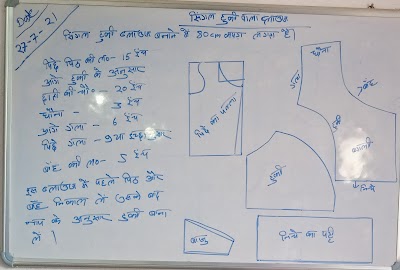 Date
27-7-21
सिंगल डुकी वाला ब्लाउज
सिंगल डुकी ब्लाउज बनाने में 80cm कपड़ा लगता है।
पिछे पिठ की लं०- 15 इंच
आगे डुकी के अनुसार
छाती की चौ०- 20 इंच
चौना - 3 इंच
आगे गला - 6 इंच
पिछे गला - 9 या इच्छानुसार
बाँह की लं० - 5 इंच
इस ब्लाउज में पहले पिठ और
बाँह निकाल लें उसके बाद
नाप के अनुसार डुकी बना
लें।
पिछे का पल्ला
चौना
गला
बाँह
डुकी
बगली
निचे
डुकी
बाजु
निचे का पट्टी